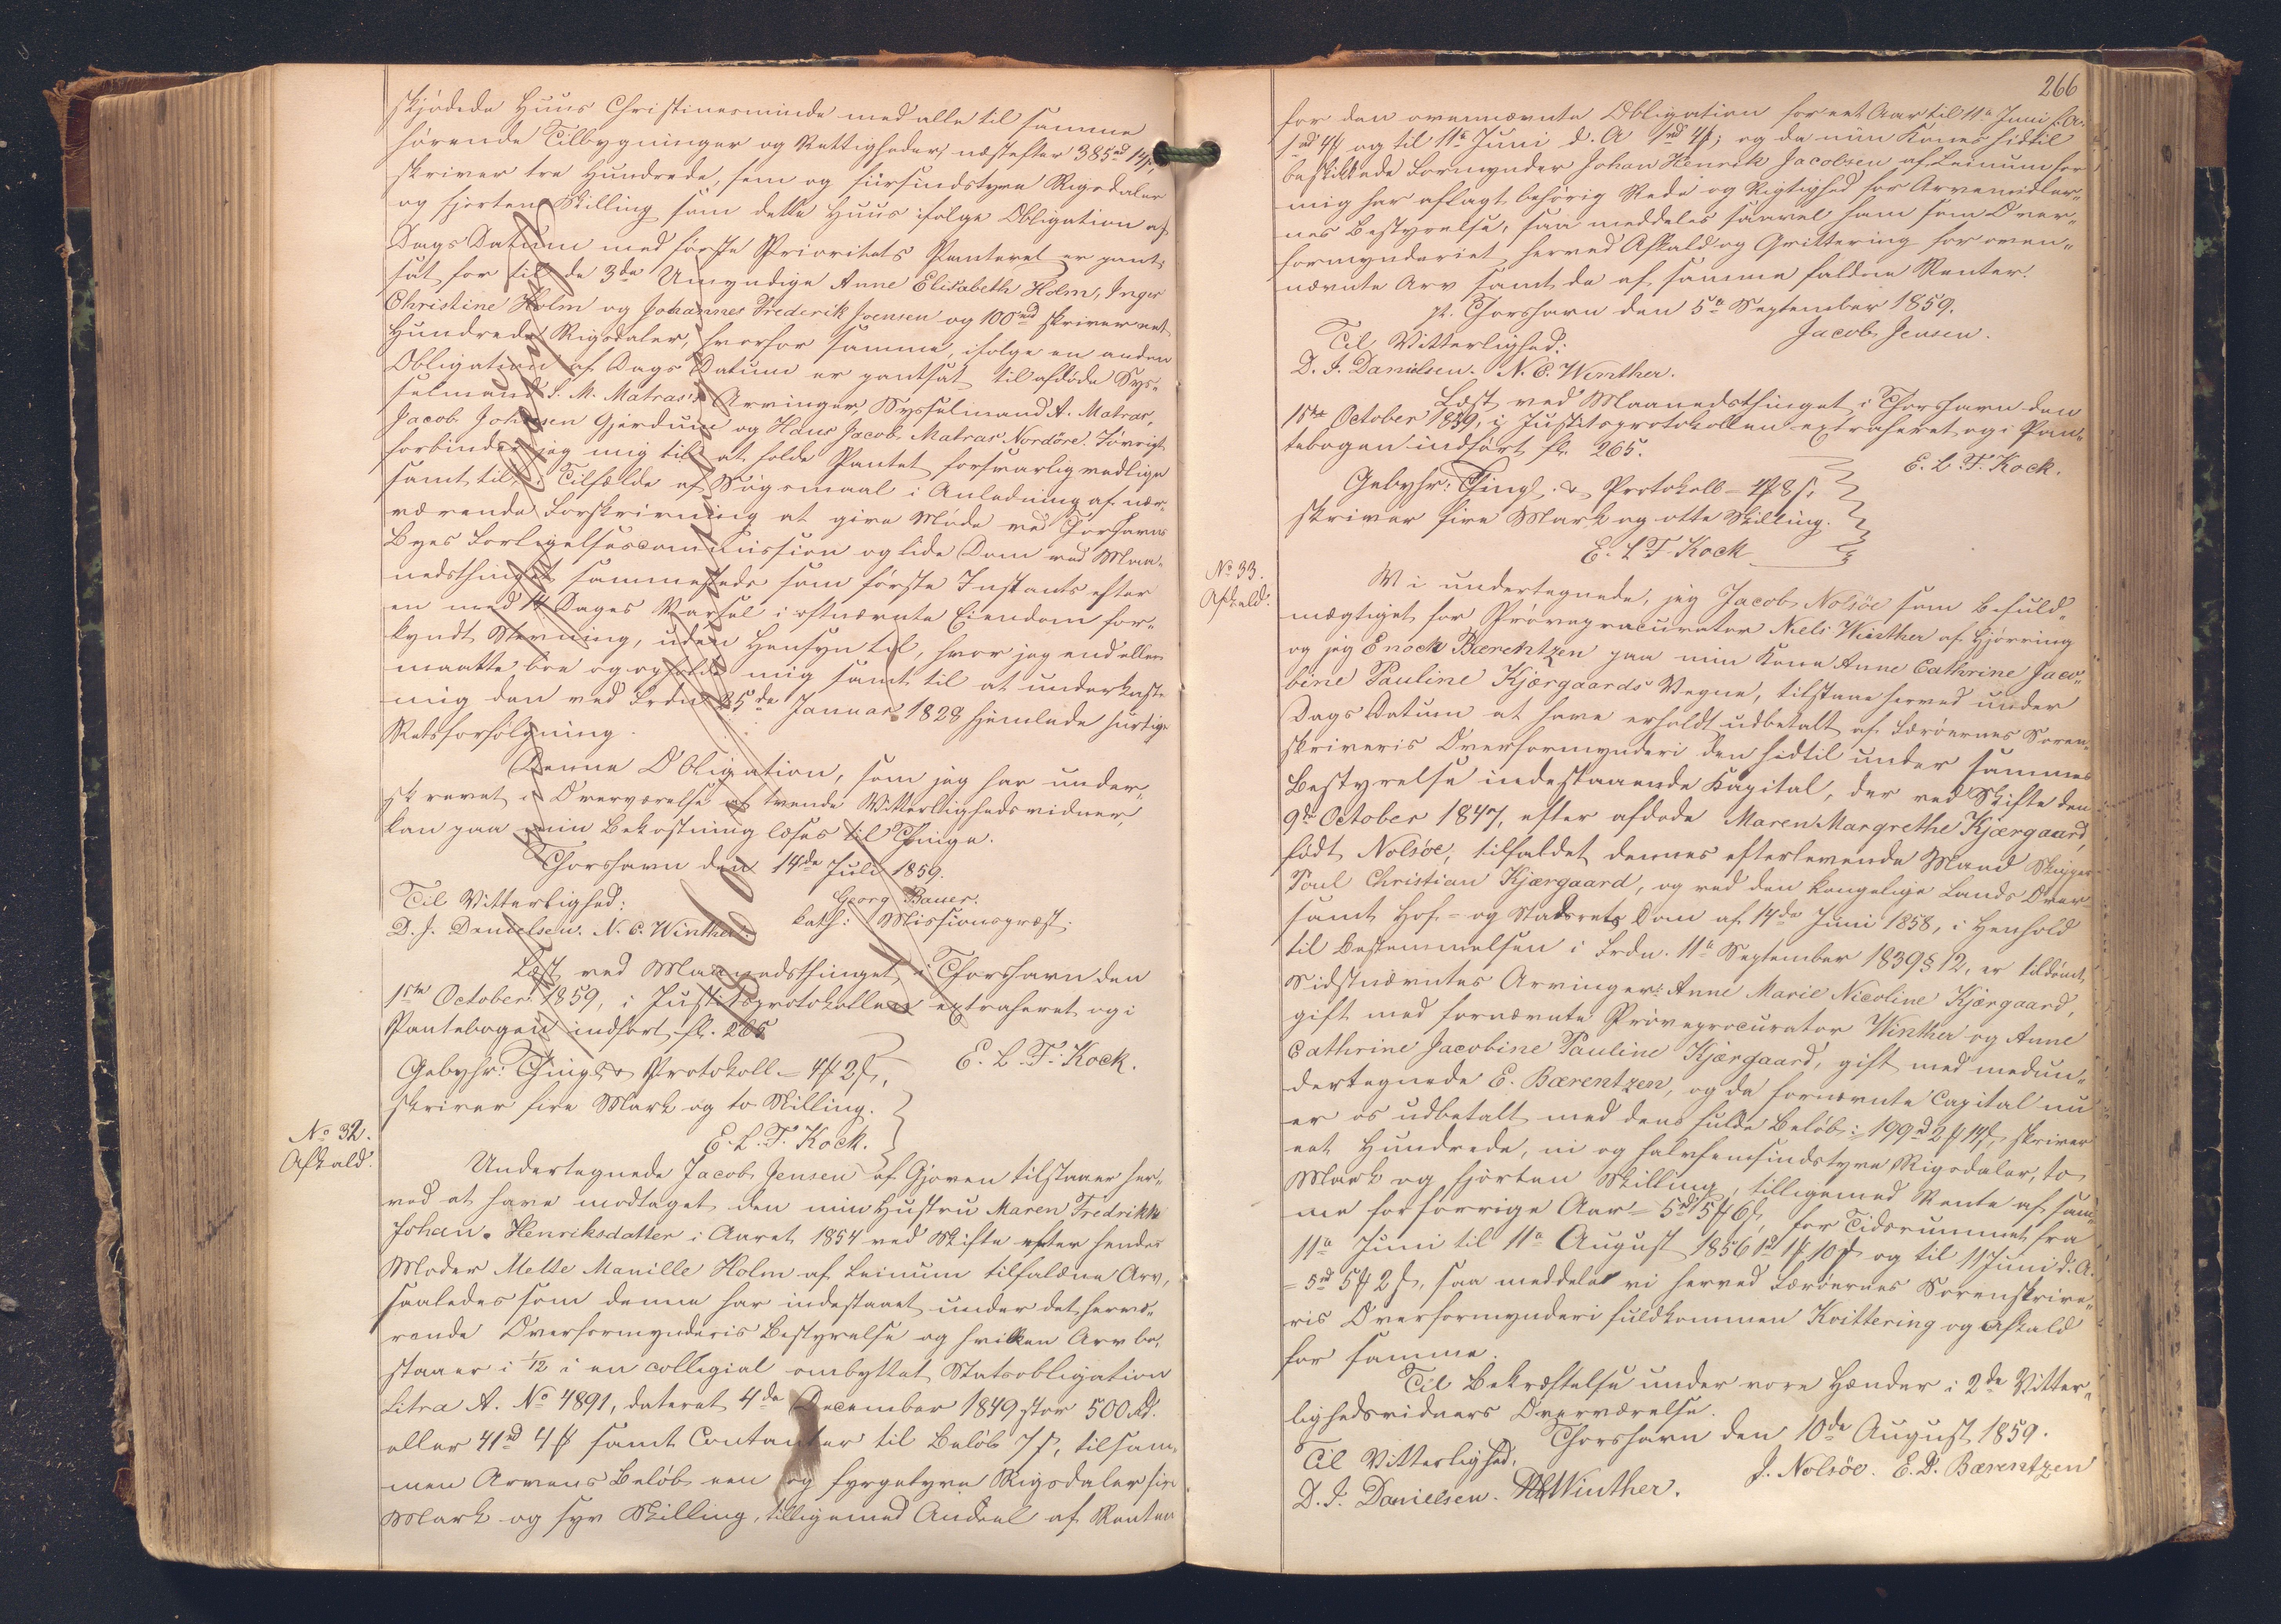 skjødede Huus Christinesminde med alle til samme
hørende Tilbygninger og Rettigheder, næstefter 385rd 14ß,
skriver tre Hundrede, fem og fiirsindstyve Rigsdaler
og fjorten Skilling som dette Huus ifølge Obligation af
Dags Datum med første Prioritets Panteret er pant-
sat for til de 3de Umyndige Anne Elisabeth Holm, Inger
Christine Holm og Johannes Frederik Joensen og 100rd skriver eet
Hundrede Rigsdaler, hvorfor samme, ifølge en anden
Obligation af Dags Datum er pantsat til afdøde Sys-
selmand S. M. Matras's Arvinger, Sysselmand A. Matras,
Jacob Johnsen Gjerdum og Hans Jacob Matras Nordøre. Iøvrigt
forbinder jeg mig til at holde Pantet forsvarlig vedlige
samt til, i Tilfælde af Søgsmaal i Anledning af nær-
værende Forskrivning at give Møde ved Thorshavns
Byes Forligelsescommission og lide Dom ved Maa-
nedsthinget sammesteds som første Instants efter
en med 14 Dages Varsel i oftnævnte Eiendom for-
kyndt Stevning, uden Hensyn til, hvor jeg end ellers
maatte boe og opholde mig samt til at underkaste
mig den ved Frdn 25de Januar 1828 hjemlede hurtige
Retsforfølgning.
Denne Obligation, som jeg har under-
skrevet i Overværelse af tvende Vitterlighedsvidner,
kan paa min Bekostning læses til Thinge.
Thorshavn den 14de Juli 1859.
Til Vitterlighed:
Georg Bauer.
D. J. Danielsen. N. C. Winther.
kath: Missionspræst.
Læst ved Maanedsthinget i Thorshavn den
1ste October 1859, i Justitsprotokollen extraheret og i
Pantebogen indført fl. 265
Gebyhr: Thingl. & Protokoll = 4ꝟ 2ß,
E. L. T. Kock.
skriver fire Mark og to Skilling.
E. L. T. Kock.
No 32.
Afkald.
Undertegnede Jacob Jensen af Gjoven tilstaaer her-
ved at have modtaget den min Hustru Maren Fredrikke
Johan. Henriksdatter i Aaret 1854 ved Skifte efter hendes
Moder Mette Manille Holm af Leinum tilfaldne Arv,
saaledes som denne har indestaaet under det hervæ-
rende Overformynderis Bestyrelse og hvilken Arv be-
staaer i 1/12 i en collegial ombyttet Statsobligation
Litra A. No 4891, dateret 4de December 1849 stor 500 Rd.
eller 41rd 4ꝟ samt Contanter til Beløb 7ß, tilsam-
men Arvens Beløb een og fyrgetyve Rigsdaler fire
Mark og syv Skilling, tilligemed Andeel af Renten
266
for den ovennævnte Obligation for eet Aar til 11te Juni f. A.
1rd 4ꝟ og til 11te Juni d. A 1rd 4ꝟ; og da min Kones hidtil
beskikkede Formynder Johan Henrik Jacobsen af Leinum for
mig har aflagt behørig Rede og Rigtighed for Arvemidler-
nes Bestyrelse, saa meddeles saavel ham som Over-
formynderiet herved Afkald og Qvittering for oven-
nævnte Arv samt de af samme faldne Renter.
pt. Thorshavn den 5te September 1859.
Jacob Jensen.
Til Vitterlighed:
D. J. Danielsen. N. C. Winther.
Læst ved Maanedsthinget i Thorshavn den
1ste October 1859, i Justitsprotokollen extraheret og i Pan-
tebogen indført fl. 265.
E. L. T. Kock.
Gebyhr: Thingl. & Protokoll = 4ꝟ 8ß.
skriver fire Mark og otte Skilling.
E. L. T. Kock
No 33.
Afkald.
Vi undertegnede, jeg Jacob Nolsöe som befuld-
mægtiget for Prøveprocurator Niels Winther af Hjørring
og jeg Enock Bærentzen paa min Kone Anne Cathrine Jaco-
bine Pauline Kjærgaards Vegne, tilstaae herved under
Dags Datum at have erholdt udbetalt af Færøernes Soren-
skriveris Overformynderi den hidtil under sammes
Bestyrelse indestaaende Kapital, der ved Skifte den
9de October 1847, efter afdøde Maren Margrethe Kjærgaard,
født Nolsöe, tilfaldet dennes efterlevende Mand Skipper
Poul Christian Kjærgaard, og ved den kongelige Lands Over
samt Hof- og Stadsrets Dom af 14de Juni 1858, i Henhold
til Bestemmelsen i Frdn. 11te September 1839 § 12, er tildømt
Sidstnævntes Arvinger: Anne Marie Nicoline Kjærgaard,
gift med fornævnte Prøveprocurator Winther og Anne
Cathrine Jacobine Pauline Kjærgaard, gift med medun-
dertegnede E. Bærentzen, og da fornævnte Capital nu
er os udbetalt med dens fulde Beløb: 199rd 2ꝟ 14ß, skriver
eet Hundrede, ni og halvfemsindstyve Rigsdaler, to
Mark og fjorten Skilling, tilligemed Rente af sam-
me for forrige Aar = 5rd 5ꝟ 6ß, for Tidsrummet fra
11te Juni til 11te August 1856 1rd 1ꝟ 10ß og til 11 Juni d. A.
= 5rd 5ꝟ 2ß, saa meddele vi herved Færøernes Sorenskrive-
ris Overformynderi fuldkommen Kvittering og Afkald
for samme.
Til Bekræftelse under vore Hænder i 2de Vitter-
lighedsvidners Overværelse.
Thorshavn den 10de August 1859.
Til Vitterlighed.
J. Nolsöe. E. D. Bærentzen
D. J. Danielsen. NCWinther.